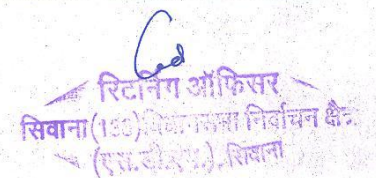 रिटर्निंग ऑफिसर
सिवाना विधानसभा निर्वाचन क्षेत्र
(एस.डी.एम.), सिवाना